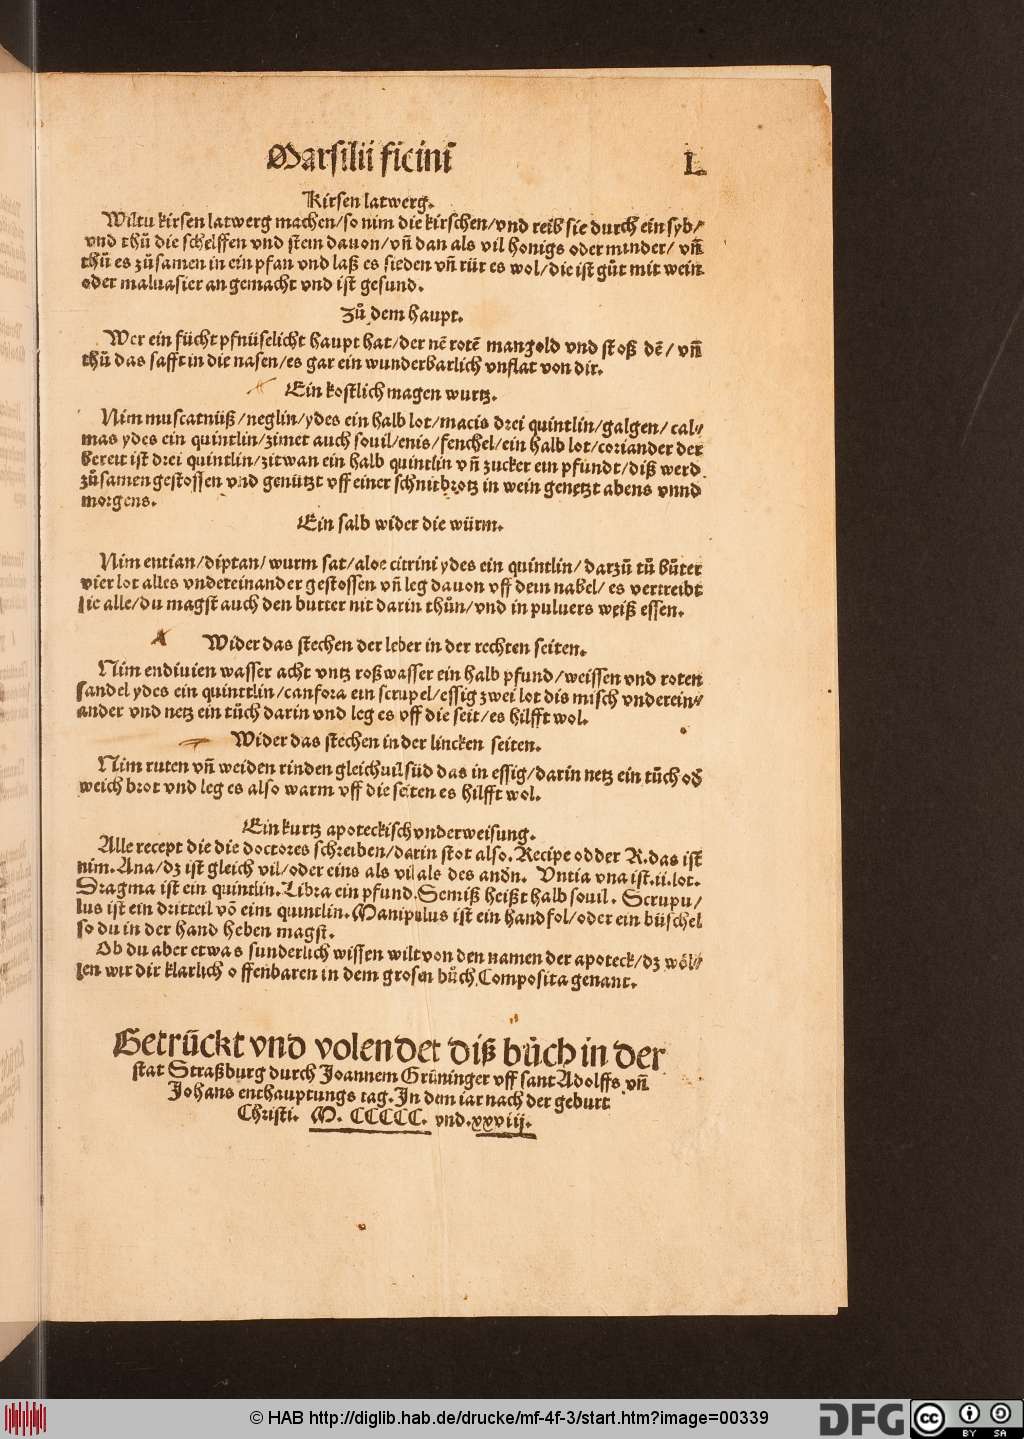 Marsilii ficini L
Kirsen latwerg.
Wiltu kirsen latwerg machen/so nim die kirschen/vnd reib sie durch ein syb/
vnd thů die schelffen vnd stein dauon/vñ dan als vil honigs oder minder/ vñ
thů es zůsamen in ein pfan vnd laß es sieden vñ rür es wol/die ist gůt mit wein
oder maluasier an gemacht vnd ist gesund.
Zů dem haupt.
Wer ein fücht pfnüselicht haupt hat/der nē rotē mangold vnd stoß dē/ vñ
thů das safft in die nasen/es gar ein wunderbarlich vnflat von dir.
Ein kostlich magen wurtz.
Nim muscatnüß/neglin/ydes ein halb lot/macis drei quintlin/galgen/ cal⸗
mas ydes ein quintlin/zimet auch souil/enis/fenchel/ein halb lot/coriander der
bereit ist drei quintlin/zitwan ein halb quintlin vñ zucker ein pfundt/diß werd
zůsamen gestossen vnd genützt vff einer schnitbrotz in wein genetzt abens vnnd
morgens.
Ein salb wider die würm.
Nim entian/diptan/wurm sat/aloe citrini ydes ein quintlin/darzů tů bůter
vier lot alles vndereinander gestossen vñ leg dauon vff dem nabel/ es vertreibt
sie alle/du magst auch den butter nit darin thůn/vnd in puluers weiß essen.
Wider das stechen der leber in der rechten seiten.
Nim endiuien wasser acht vntz roßwasser ein halb pfund/weissen vnd roten
sandel ydes ein quinttlin/canfora ein scrupel/essig zwei lot dis misch vnderein⸗
ander vnd netz ein tůch darin vnd leg es vff die seit/es hilfft wol.
Wider das stechen in der lincken seiten.
Nim ruten vñ weiden rinden gleichuil süd das in essig/darin netz ein tůch od̕
weich brot vnd leg es also warm vff die seiten es hilfft wol.
Ein kurtz apoteckisch vnderweisung.
Alle recept die die doctores schreiben/darin stot also. Recipe od der R. das ist
nim. Ana/dz ist gleich vil/oder eins als vil als des andn̄. Vntia vna ist.ii.lot.
Dragma ist ein quintlin. Libra ein pfund. Semiß heißt halb souil. Scrupu/
lus ist ein dritteil võ eim quintlin. Manipulus ist ein handfol/oder ein büschel
so du in der hand heben magst.
Ob du aber etwas sunderlich wissen wilt von den namen der apoteck/dz wöl⸗
len wir dir klarlich offenbaren in dem grosen bůch Composita genant.
Getrückt vnd volendet diß bůch in der
stat Straßburg durch Joannem Grüninger vff sant Adolffs vñ
Johans enthauptungs tag. In dem iar nach der geburt
Christi. M. CCCCC. vnd. xxviij.
© HAB http://diglib.hab.de/drucke/mf-4f-3/start.htm?image=00339
DFG
cc BY SA